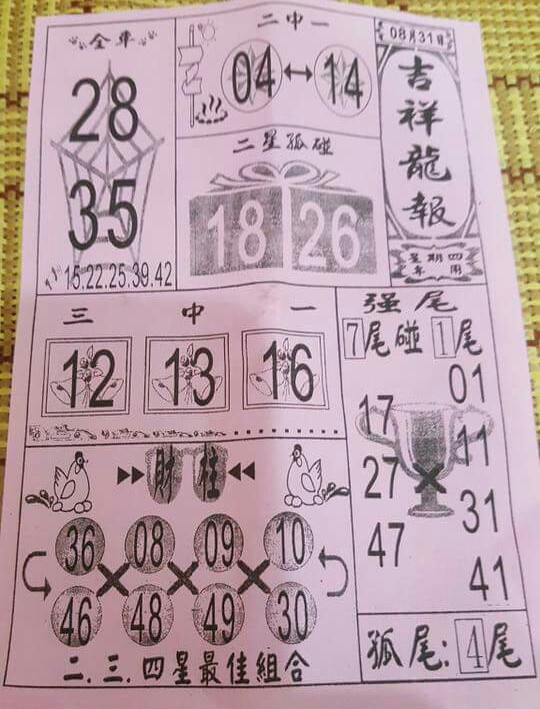 08月31日
吉祥龍報
星期四
年用
全車
28
35
15.22.25.39.42
二中一
04 ↔ 14
二星孤碰
18 26
三中一
12 13 16
强尾
7尾碰1尾
17 01
27 × 11
47 31
41
財柱
36 08 09 10
× × ×
46 48 49 30
二.三.四星最佳組合
孤尾:4尾